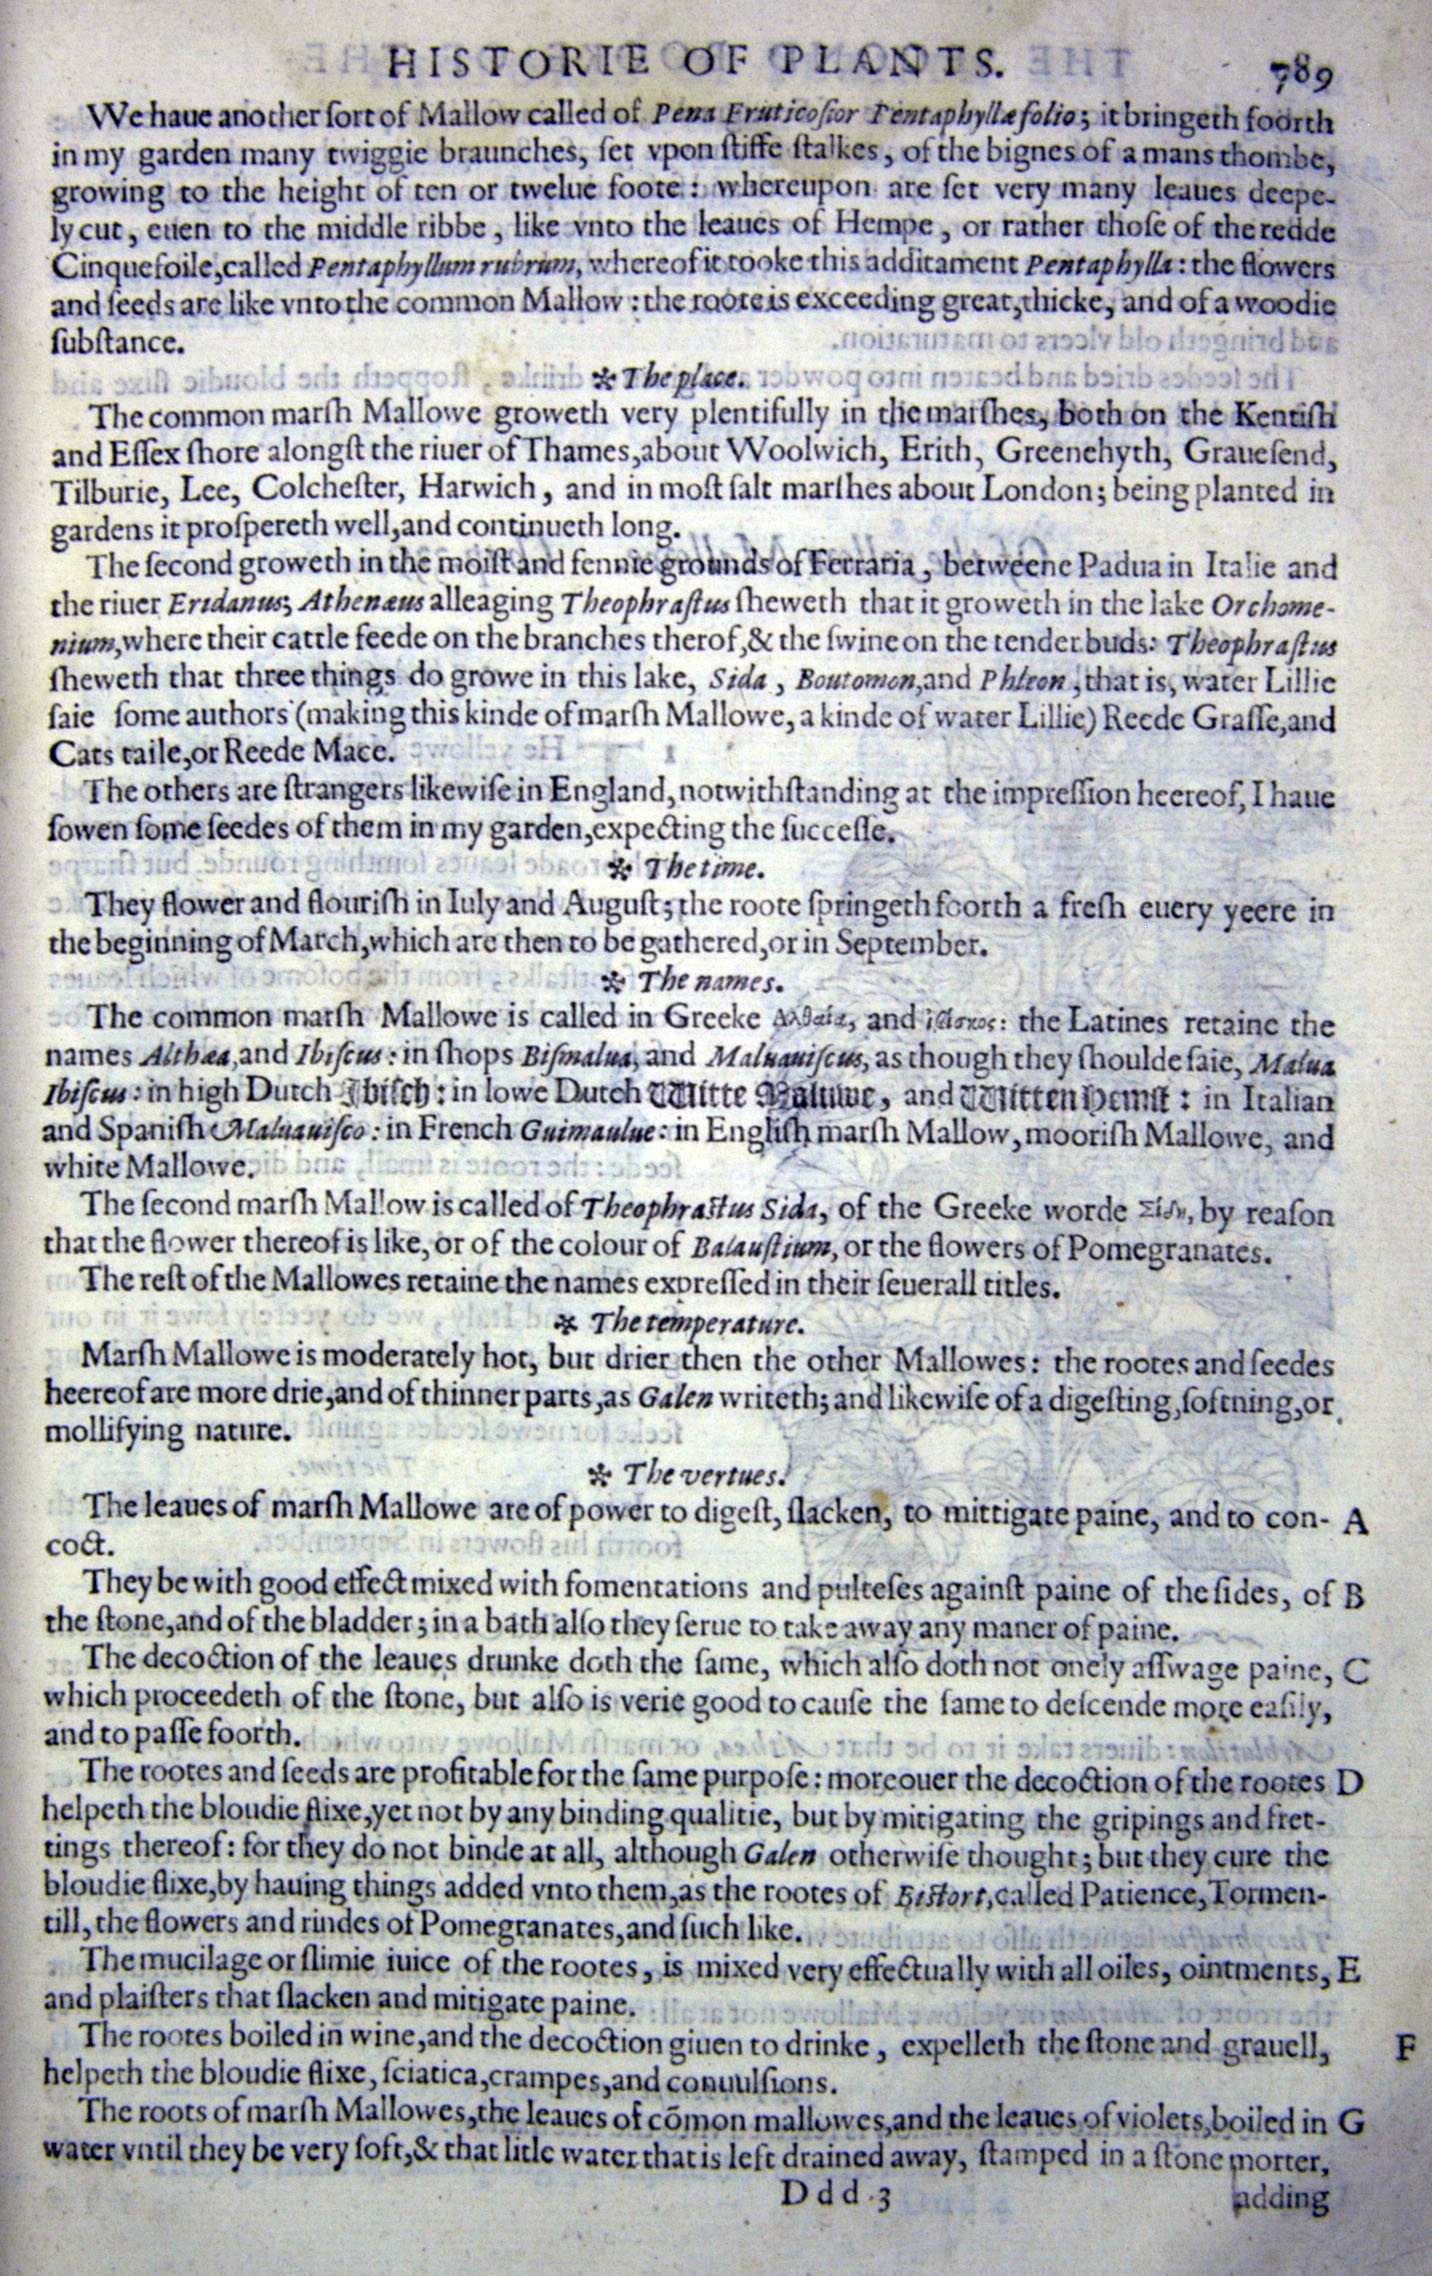 HISTORIE OF PLANTS. 789
We haue another ſort of Mallow called of Pena Fruticoſior Pentaphyllæ folio; it bringeth foorth
in my garden many twiggie braunches, ſet vpon ſtiffe ſtalkes, of the bignes of a mans thombe,
growing to the height of ten or twelue foote: whereupon are ſet very many leaues deepe-
ly cut, euen to the middle ribbe, like vnto the leaues of Hempe, or rather thoſe of the redde
Cinquefoile, called Pentaphyllum rubrum, whereof it tooke this additament Pentaphylla: the flowers
and ſeeds are like vnto the common Mallow: the roote is exceeding great, thicke, and of a woodie
ſubſtance.
✻ The place.
The common marſh Mallowe groweth very plentifully in the marſhes, both on the Kentiſh
and Eſſex ſhore alongſt the riuer of Thames, about Woolwich, Erith, Greenehyth, Graueſend,
Tilburie, Lee, Colcheſter, Harwich, and in moſt ſalt marſhes about London; being planted in
gardens it proſpereth well, and continueth long.
The ſecond groweth in the moiſt and fennie grounds of Ferraria, betweene Padua in Italie and
the riuer Eridanus; Athenæus alleaging Theophraſtus ſheweth that it groweth in the lake Orchome-
nium, where their cattle feede on the branches therof, & the ſwine on the tender buds: Theophraſtus
ſheweth that three things do growe in this lake, Sida, Boutomon, and Phleon, that is, water Lillie
ſaie ſome authors (making this kinde of marſh Mallowe, a kinde of water Lillie) Reede Graſſe, and
Cats taile, or Reede Mace.
The others are ſtrangers likewiſe in England, notwithſtanding at the impreſſion heereof, I haue
ſowen ſome ſeedes of them in my garden, expecting the ſucceſſe.
✻ The time.
They flower and flouriſh in Iuly and Auguſt; the roote ſpringeth foorth a freſh euery yeere in
the beginning of March, which are then to be gathered, or in September.
✻ The names.
The common marſh Mallowe is called in Greeke Ἀλθαία, and ἰβίσκος: the Latines retaine the
names Althæa, and Ibiſcus: in ſhops Biſmalua, and Maluauiſcus, as though they ſhoulde ſaie, Malua
Ibiſcus: in high Dutch Ibiſch: in lowe Dutch Witte Maluwe, and Witten Hemſt: in Italian
and Spaniſh Maluauiſco: in French Guimaulue: in Engliſh marſh Mallow, mooriſh Mallowe, and
white Mallowe.
The ſecond marſh Mallow is called of Theophraſtus Sida, of the Greeke worde Σίδη, by reaſon
that the flower thereof is like, or of the colour of Balauſtium, or the flowers of Pomegranates.
The reſt of the Mallowes retaine the names expreſſed in their ſeuerall titles.
✻ The temperature.
Marſh Mallowe is moderately hot, but drier then the other Mallowes: the rootes and ſeedes
heereof are more drie, and of thinner parts, as Galen writeth; and likewiſe of a digeſting, ſoftning, or
mollifying nature.
✻ The vertues.
The leaues of marſh Mallowe are of power to digeſt, ſlacken, to mittigate paine, and to con- A
coct.
They be with good effect mixed with fomentations and pulteſes againſt paine of the ſides, of B
the ſtone, and of the bladder; in a bath alſo they ſerue to take away any maner of paine.
The decoction of the leaues drunke doth the ſame, which alſo doth not onely aſſwage paine, C
which proceedeth of the ſtone, but alſo is verie good to cauſe the ſame to deſcende more eaſily,
and to paſſe foorth.
The rootes and ſeeds are profitable for the ſame purpoſe: moreouer the decoction of the rootes D
helpeth the bloudie flixe, yet not by any binding qualitie, but by mitigating the gripings and fret-
tings thereof: for they do not binde at all, although Galen otherwiſe thought; but they cure the
bloudie flixe, by hauing things added vnto them, as the rootes of Biſtort, called Patience, Tormen-
till, the flowers and rindes of Pomegranates, and ſuch like.
The mucilage or ſlimie iuice of the rootes, is mixed very effectually with all oiles, ointments, E
and plaiſters that ſlacken and mitigate paine.
The rootes boiled in wine, and the decoction giuen to drinke, expelleth the ſtone and grauell, F
helpeth the bloudie flixe, ſciatica, crampes, and conuulſions.
The roots of marſh Mallowes, the leaues of cōmon mallowes, and the leaues of violets, boiled in G
water vntil they be very ſoft, & that litle water that is left drained away, ſtamped in a ſtone morter,
Ddd 3 adding